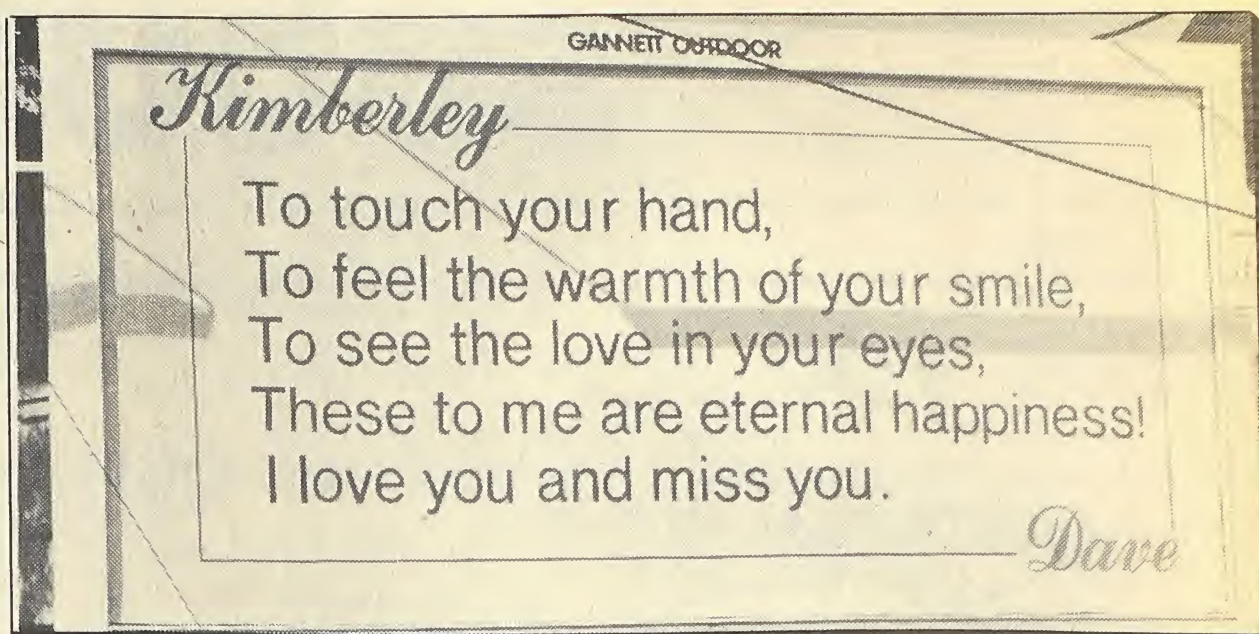 GANNETT OUTDOOR
Kimberley
To touch your hand,
To feel the warmth of your smile,
To see the love in your eyes,
These to me are eternal happiness!
I love you and miss you.
Dave